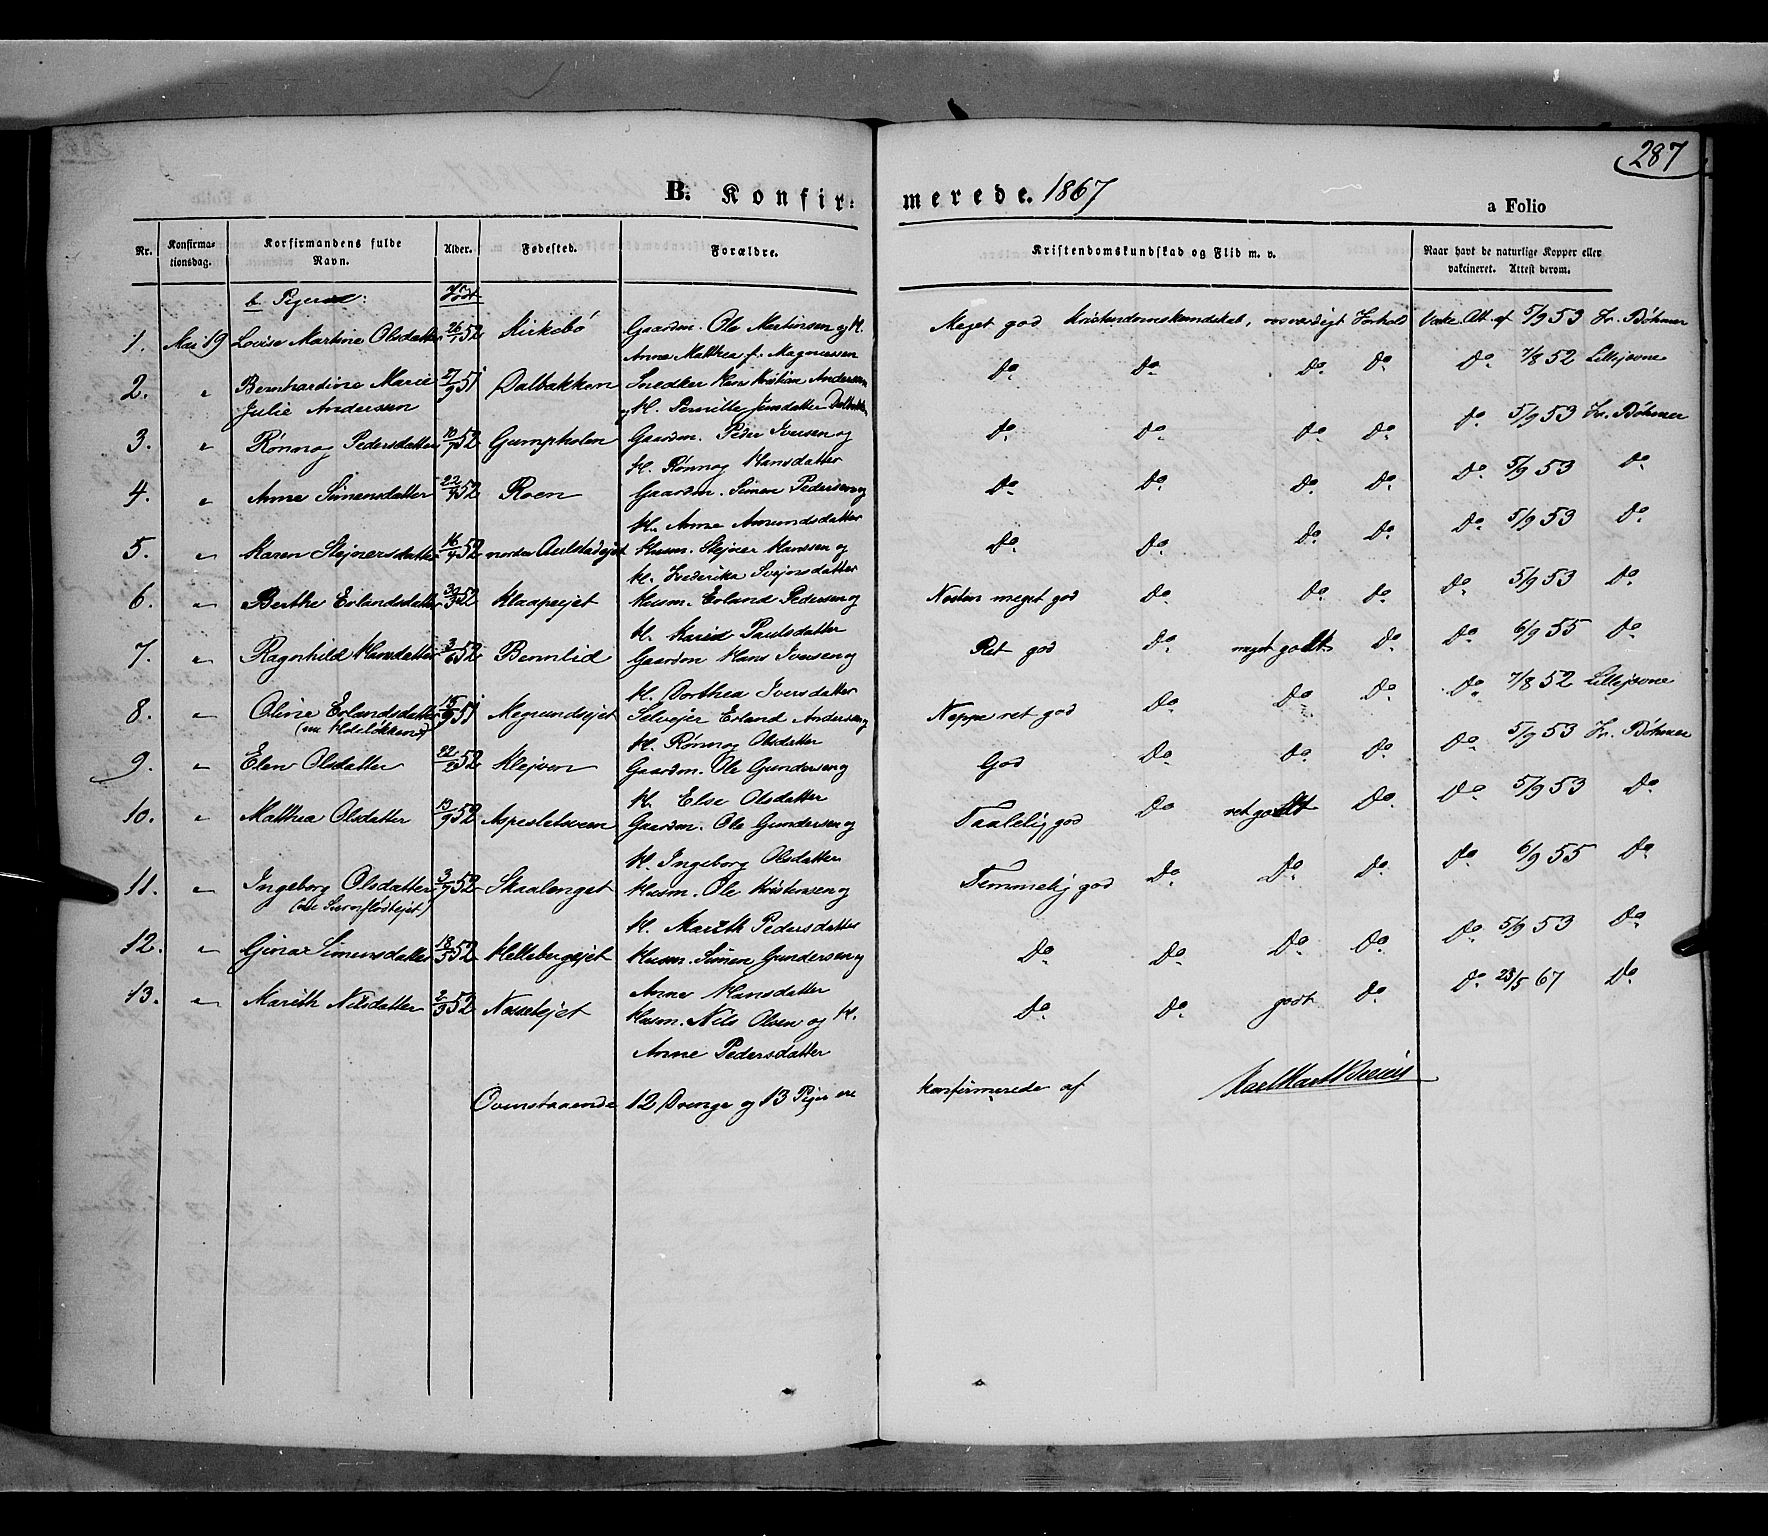 287
B. Konfir- merede. 1867 a Folio
Nr. Konfirma-tionsdag. Konfirmandens fulde Navn. Alder. Fødested. Forældre. Kristendomskundskab og Flid m. v. Naar havt de naturlige Kopper eller vakcineret. Attest derom.
b. Piger: Født
1. Mai 19 Lovise Martine Olsdatter 26/1 52 Gaardm. Ole Martinsen og K. Meget god Kristendomskundskab, rosværdigt Forhold Vakc. Att. af 5/9 53 Fr. Bøhmer
Anne Matthea f. Magnussen
2. " Bernhardine Marie 27/9 51 Dalbakken Snedker Hans Kristian Andersen Do Do Do Do Do 7/8 52 Lillejevne
Julie Andersen og K. Pernille Jensdatter
3. " Rønnog Pedersdatter 10/7 52 Gumpholen Gaardm. Peder Iversen og Do Do Do Do Do 5/9 53 Fr. Bøhmer
K. Rønnog Hansdatter
4. " Anne Simensdatter 22/7 52 Roen Gaardm. Simen Pedersen og Do Do Do Do Do 5/9 53 Do
K. Anne Amundsdatter
5. " Karen Stejnersdatter 16/4 52 nordre Aulstadejet Husm. Stejner Hanssen og Do Do Do Do Do 5/9 53 Do
K. Frederika Svejnsdatter
6. " Berthe Erlandsdatter 52 Klaapejet Husm. Erland Pedersen og Næsten meget god Do Do Do Do 5/9 53 Do
K. Kari Paulsdatter
7. " Ragnhild Hansdatter 3/6 52 Bennlid Gaardm Hans Iversen og Ret god Do meget godt Do Do 6/9 55 Do
K. Dorthea Iversdatter
8. " Oline Erlandsdatter 51 Megrundsejet Selvejer Erland Andersen og Neppe ret god Do Do Do Do 7/8 52 Lillejevne
K. Rønnog Olsdatter
9. " Elen Olsdatter 52 Klejven Gaardm. Ole Gundersen og God Do Do Do Do 5/9 53 Fr. Bøhmer
K. Else Olsdatter
10. " Matthea Olsdatter 19/9 52 Aspesletveen Gaardm. Ole Gundersen og Taalelig god Do ret godt Do Do 5/9 53 Do
K. Ingeborg Olsdatter
11. " Ingeborg Olsdatter 3/7 52 Skaalenget Husm. Ole Kristensen og Temmelig god Do Do Do Do 6/9 55 Do
K. Marith Pedersdatter
12. " Gina Simensdatter 18/5 52 Hellebergejet Husm. Simen Gundersen og Do Do Do Do Do 5/9 53 Do
Anne Hansdatter
13. " Marith Nilsdatter 2/3 52 Husm. Nils Olsen og K. Do Do godt Do Do 23/5 67 Do
Anne Pedersdatter
Ovenstaaende 12 Drenge og 13 Piger ere konfirmerede af